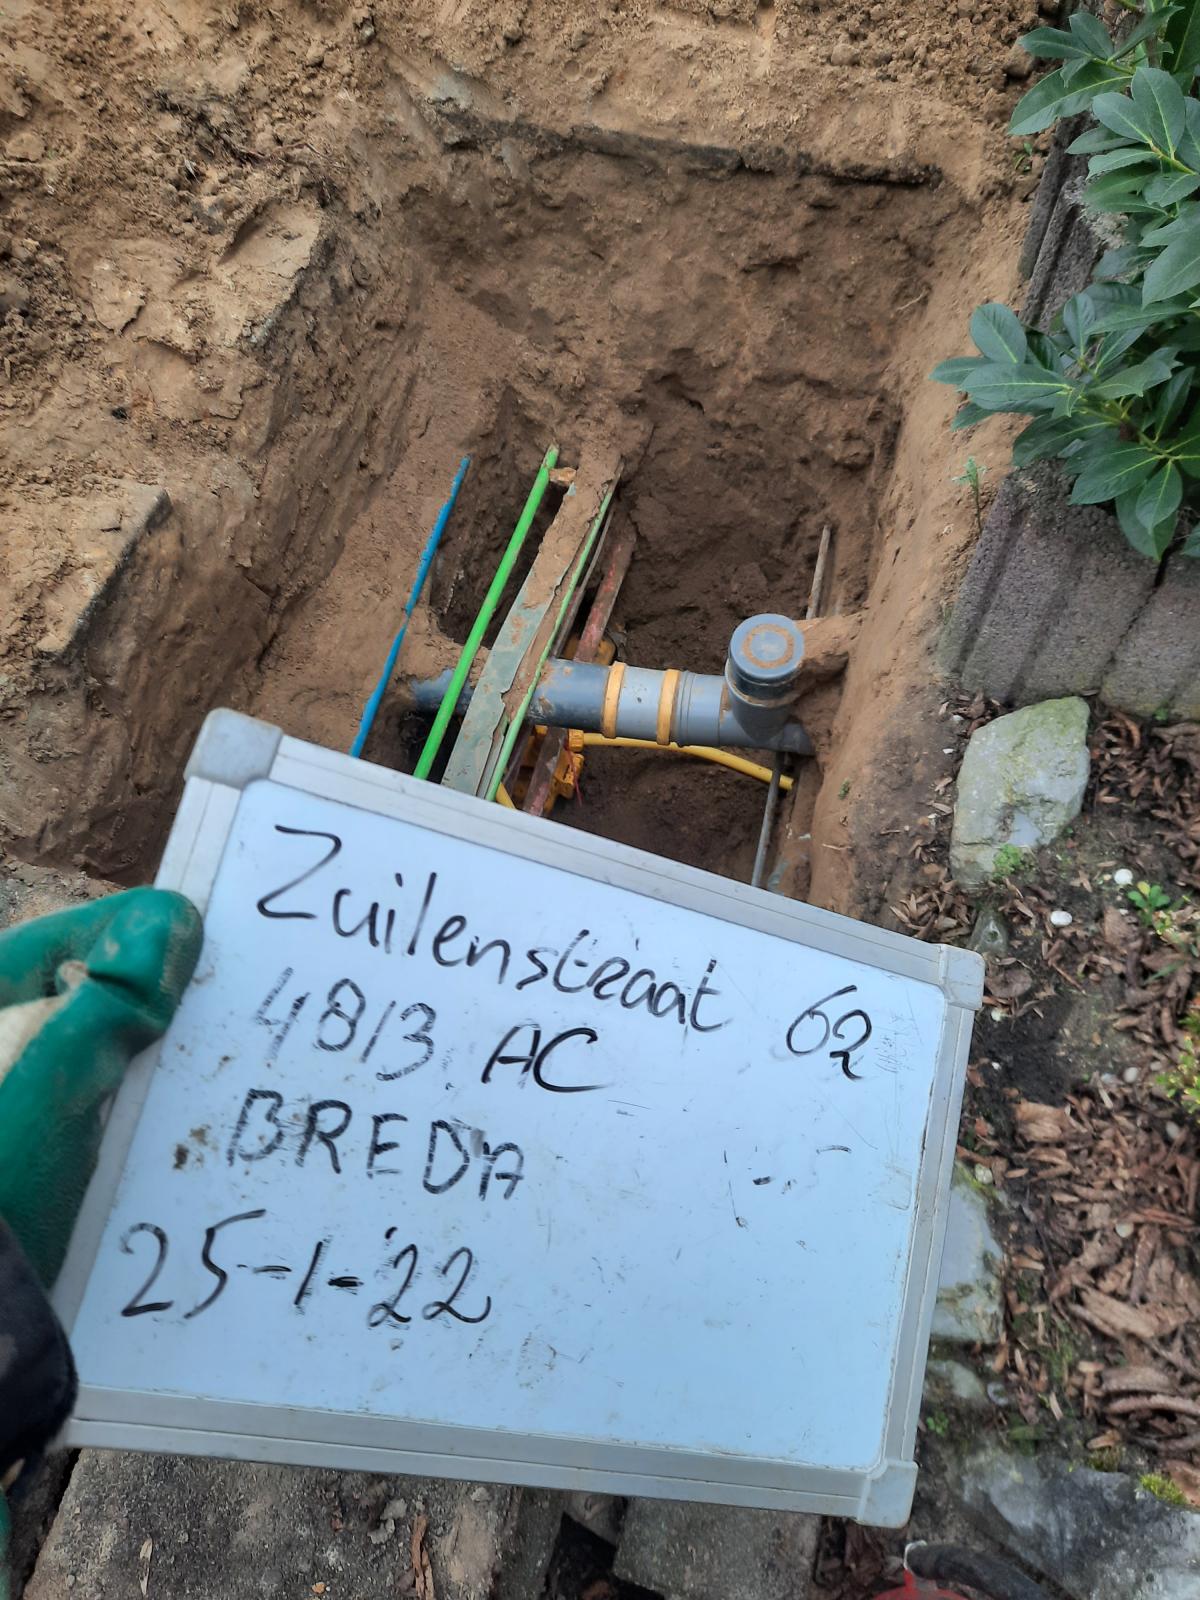 Zuilenstraat 62
4813 AC
BREDA
25-1-'22